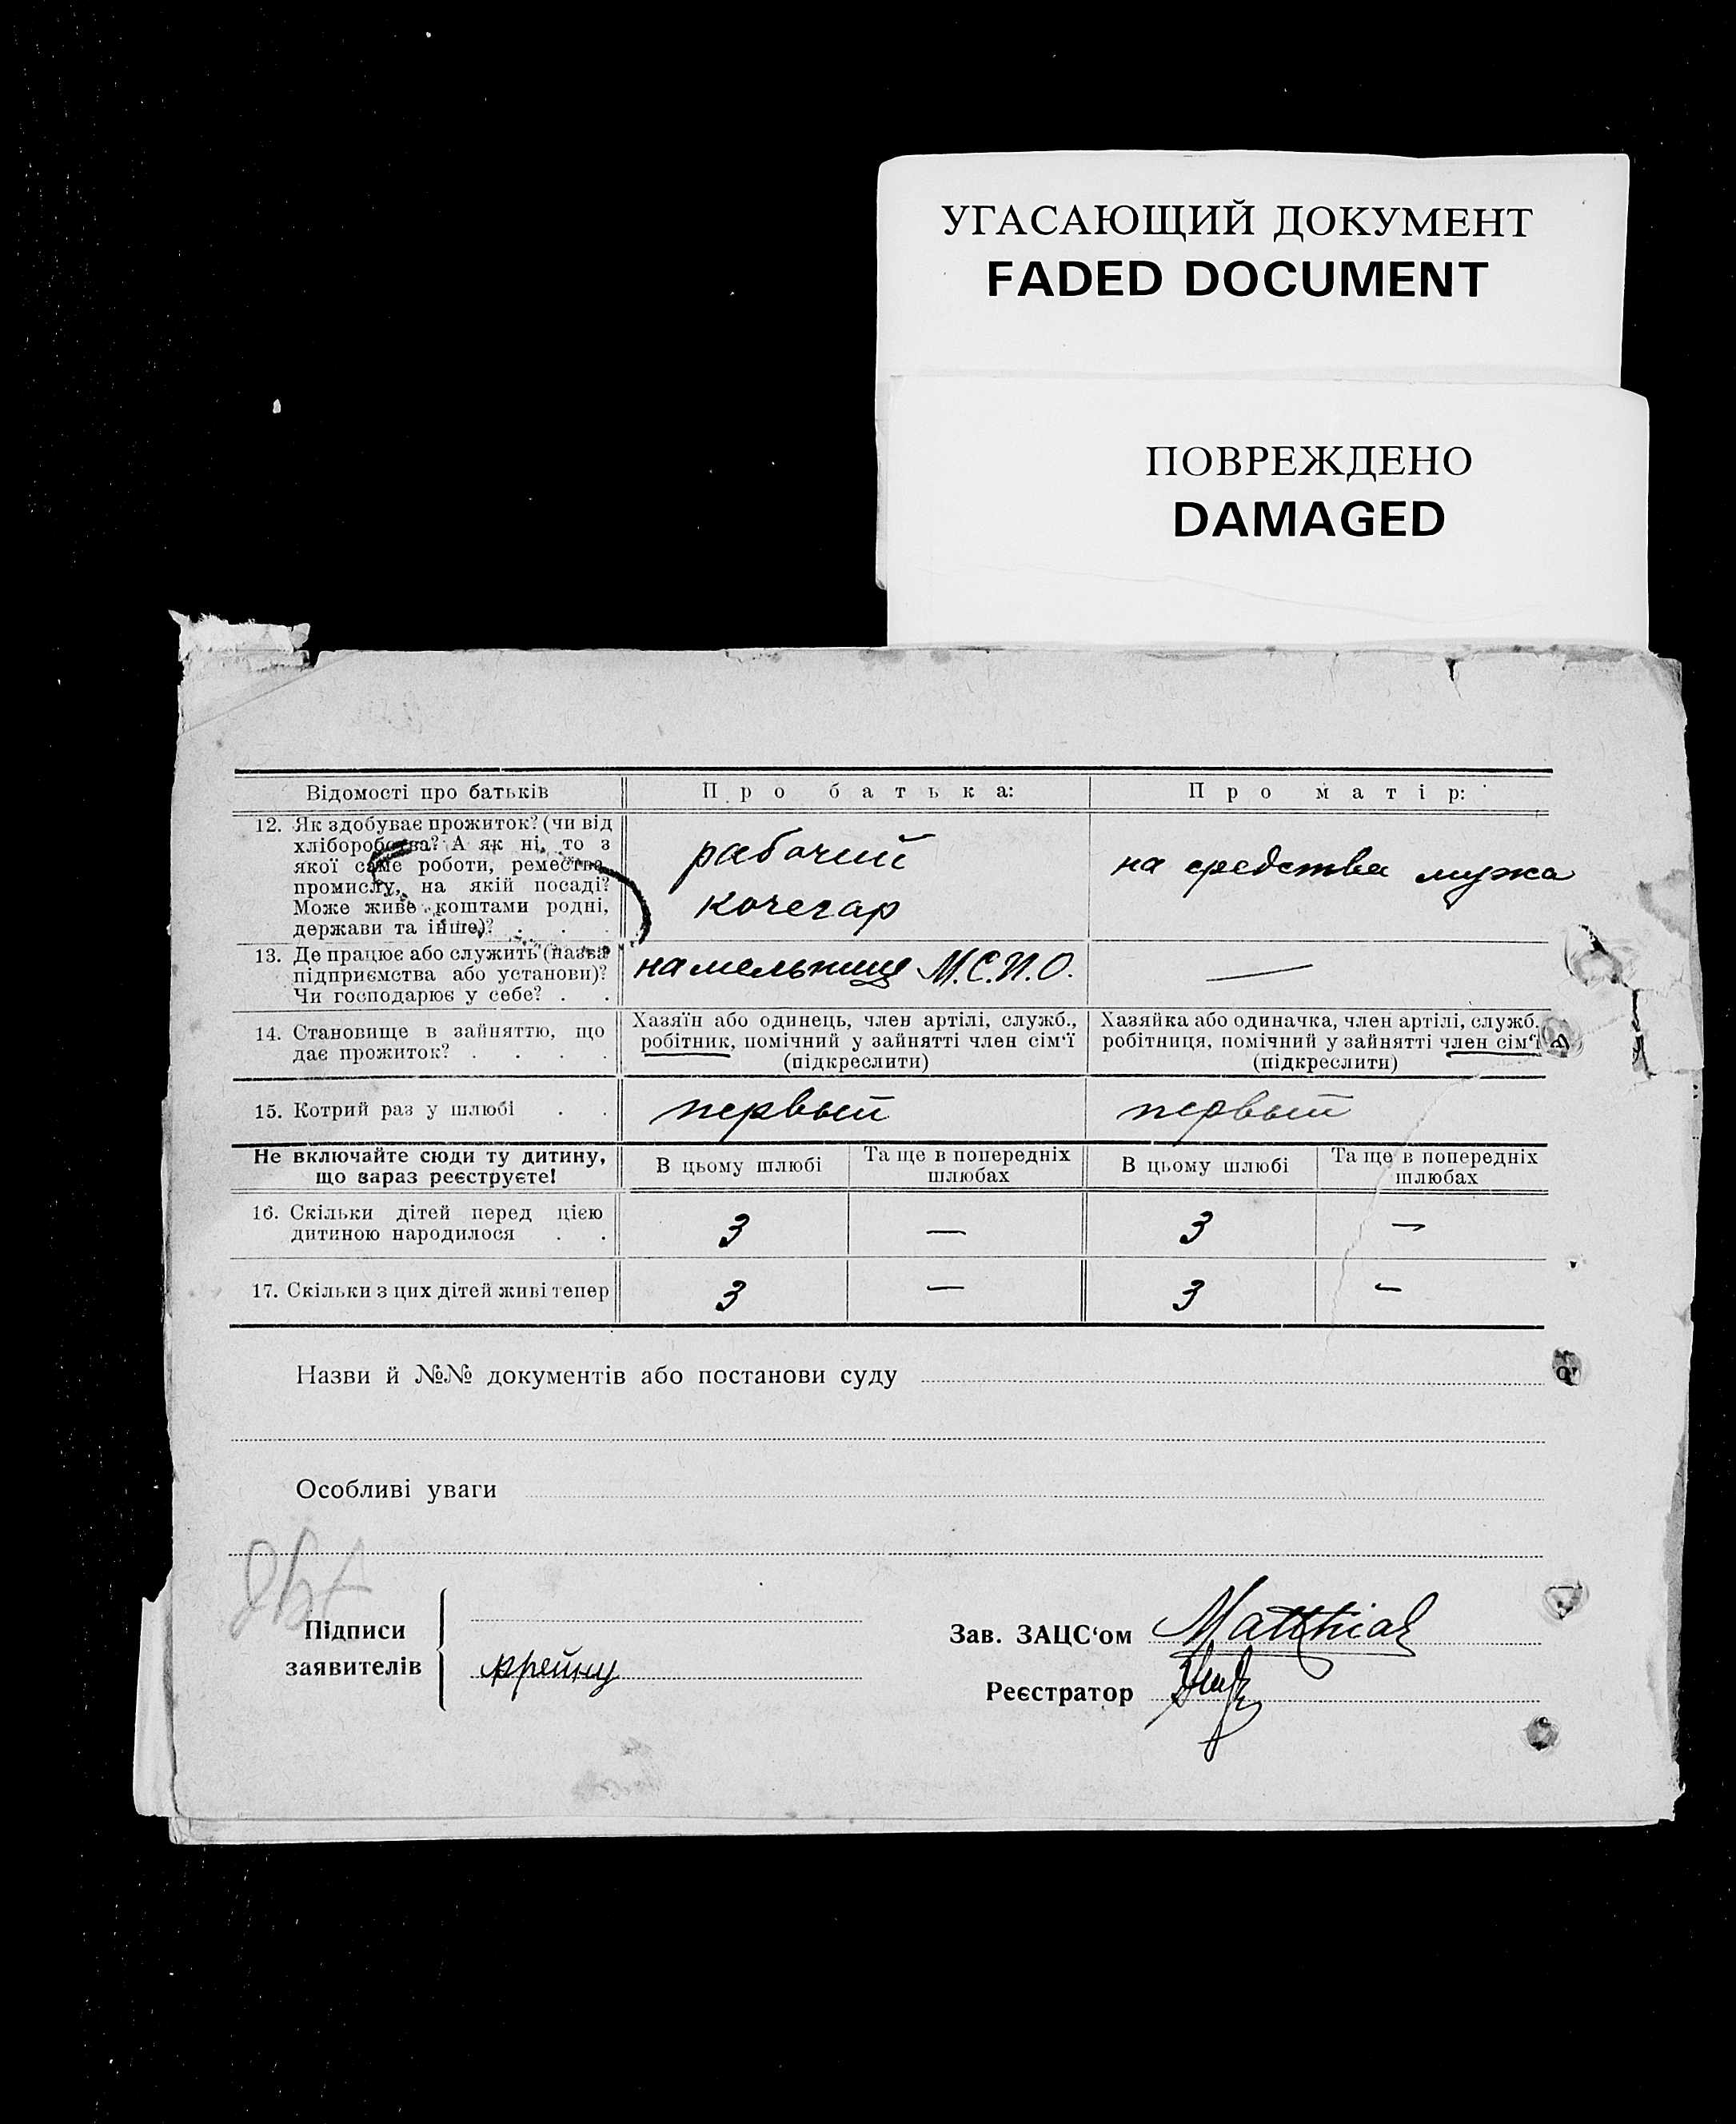 УГАСАЮЩИЙ ДОКУМЕНТ
FADED DOCUMENT
ПОВРЕЖДЕНО
DAMAGED
Відомості про батьків
Про батька:
Про матір:
12. Як здобуває прожиток? (чи від
хліборобства? А як ні, то з
якої саме роботи, ремества,
промислу, на якій посаді?
Може живе коштами родні,
держави та інше)? . . .
рабочий
кочегар
на средства мужа
13. Де працює або служить (назва
підприємства або установи)?
Чи господарює у себе? . .
на мельнице М.С.П.О.
—
14. Становище в зайняттю, що
дає прожиток? . . . .
Хазяїн або одинець, член артілі, служб.,
робітник, помічний у зайнятті член сім'ї
(підкреслити)
Хазяйка або одиначка, член артілі, служб.
робітниця, помічний у зайнятті член сім'ї
(підкреслити)
15. Котрий раз у шлюбі . .
первый
первый
Не включайте сюди ту дитину,
що зараз реєструєте!
В цьому шлюбі
Та ще в попередніх
шлюбах
В цьому шлюбі
Та ще в попередніх
шлюбах
16. Скільки дітей перед цією
дитиною народилося . .
3
—
3
—
17. Скільки з цих дітей живі тепер
3
—
3
-
Назви й №№ документів або постанови суду
Особливі уваги
Підписи
заявителів
Зав. ЗАЦС'ом
Реєстратор